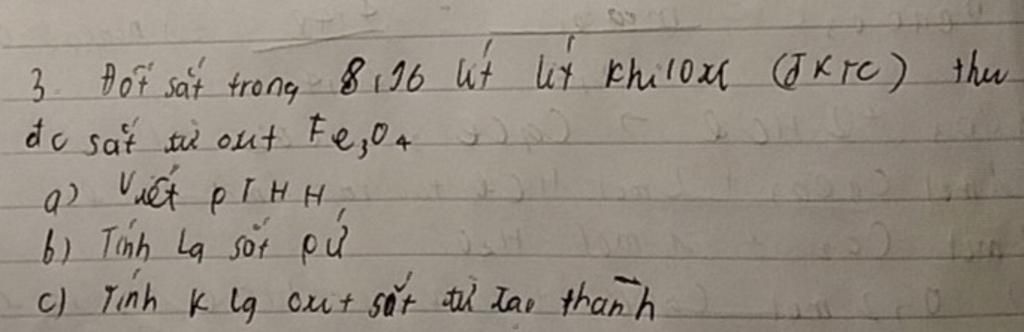 3. Đốt sắt trong 8,96 lít lít khí oxi (ĐKTC) thu
đc sắt từ oxit Fe₃O₄
a) Viết PTHH
b) Tính lg sắt pứ
c) Tính k lg oxit sắt từ tạo thành